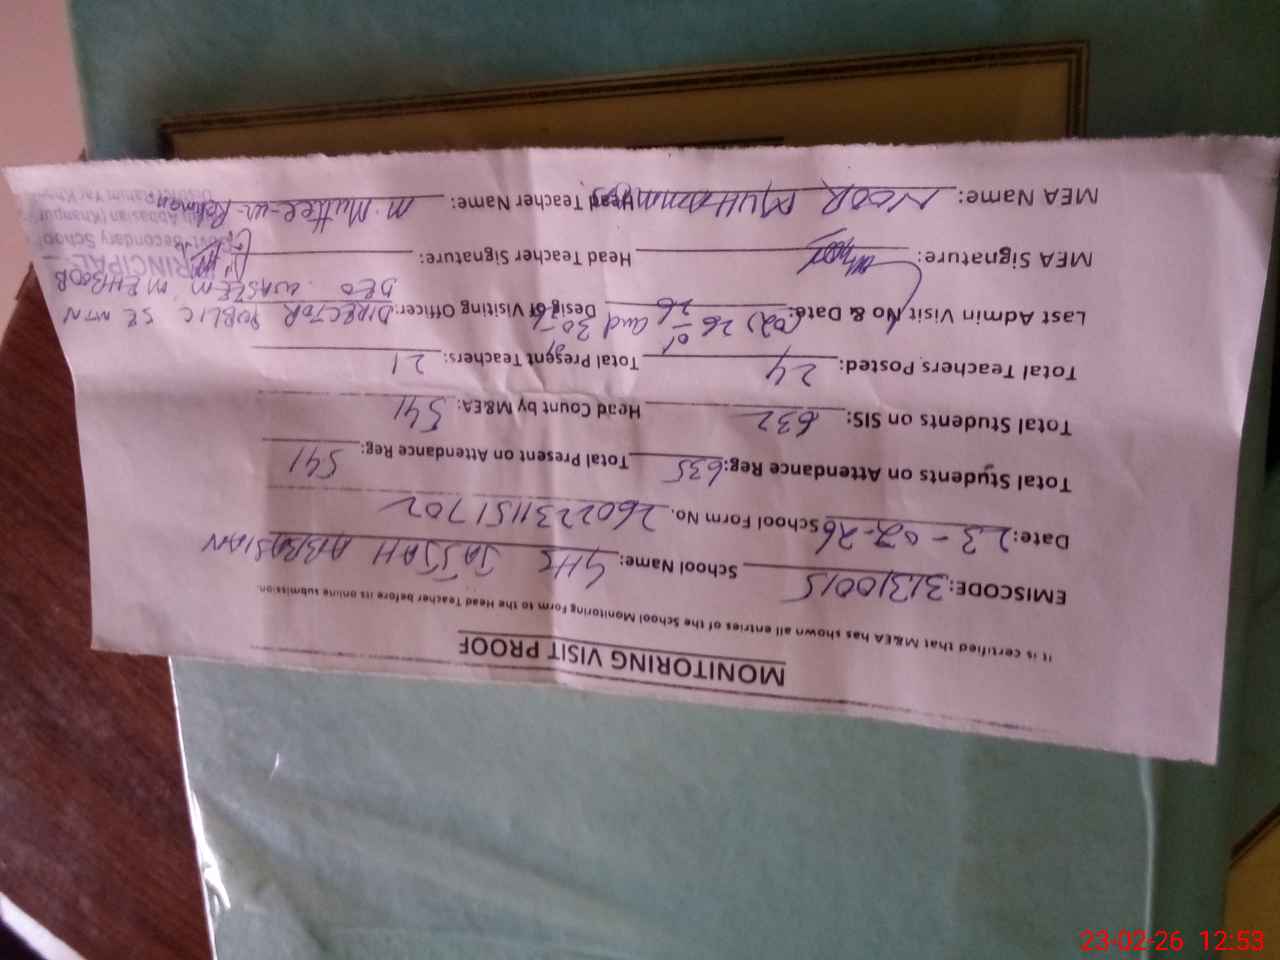 MONITORING VISIT PROOF
It is certified that M&EA has shown all entries of the School Monitoring Form to the Head Teacher before its online submission
EMISCODE: 31310015 School Name: GHS JAJJAH ABBASIAN
Date: 23-02-26 School Form No. 2602231151702
Total Students on Attendance Reg: 635 Total Present on Attendance Reg: 541
Total Students on SIS: 632 Head Count by M&EA: 541
Total Teachers Posted: 24 Total Present Teachers: 21
Last Admin Visit No & Date: (02) 26-01-26 and 30-1 Desig of Visiting Officer: DIRECTOR PUBLIC SE MTN
DEO WASEEM MEHBOOB
MEA Signature: Head Teacher Signature:
PRINCIPAL
Govt. Secondary School
Abbasian (Khanpur)
District Rahim Yar Khan
MEA Name: NOOR MUHAMMAD Head Teacher Name: M. Mutee-ur-Rehman
23-02-26 12:53